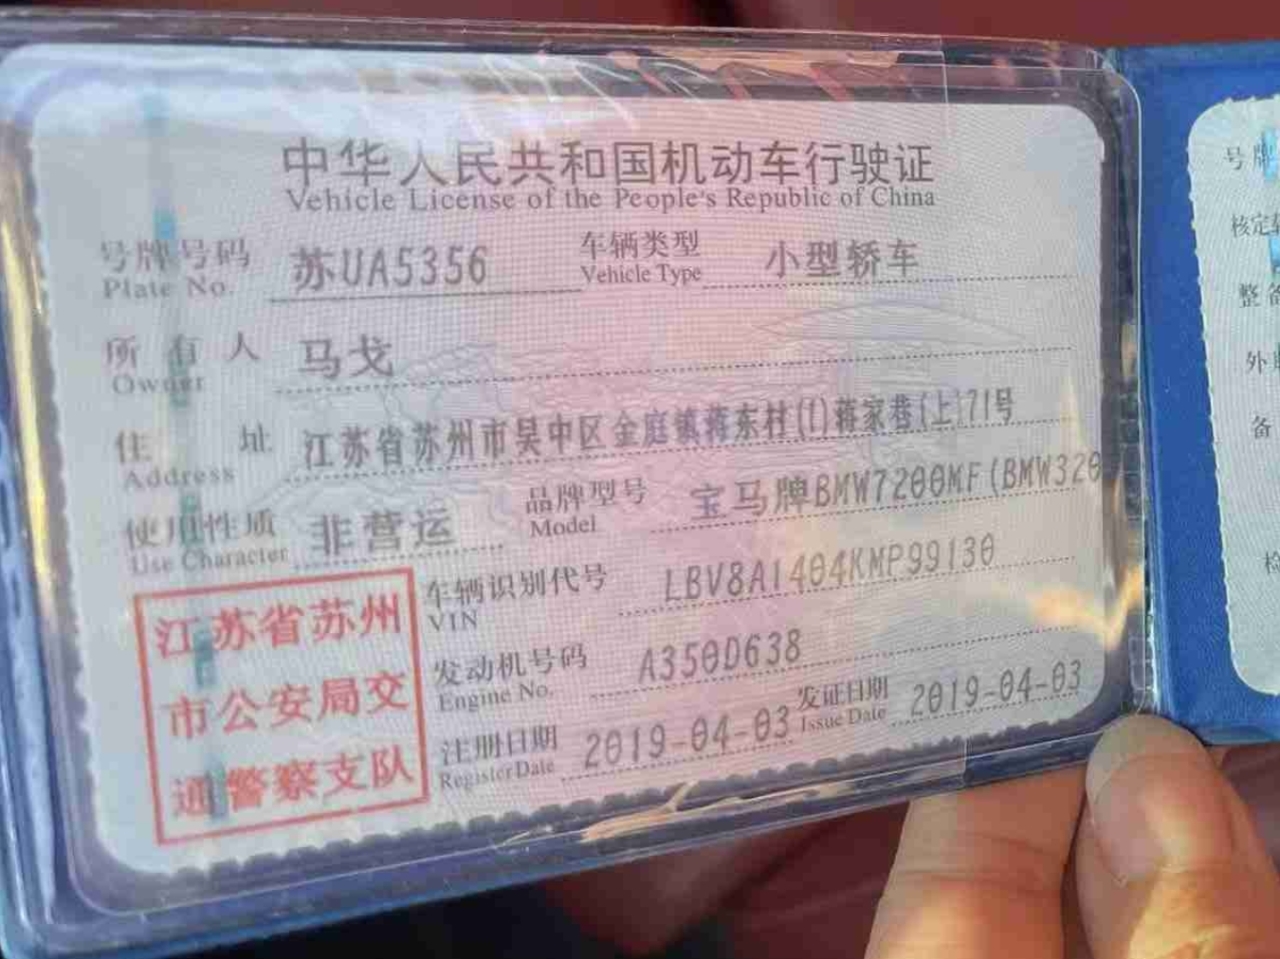 中华人民共和国机动车行驶证
Vehicle License of the People's Republic of China
号牌号码 苏UA5356 车辆类型 小型轿车
Plate No. Vehicle Type
所有人 马戈
Owner
住址 江苏省苏州市吴中区金庭镇蒋东村(1)蒋家巷(上)71号
Address
使用性质 非营运 品牌型号 宝马牌BMW7200MF(BMW320
Use Character Model
车辆识别代号 LBV8A1404KMP99130
VIN
发动机号码 A350D638
Engine No.
注册日期 2019-04-03 发证日期 2019-04-03
Register Date Issue Date
江苏省苏州
市公安局交
通警察支队
号牌
核定
整备
外
备
检